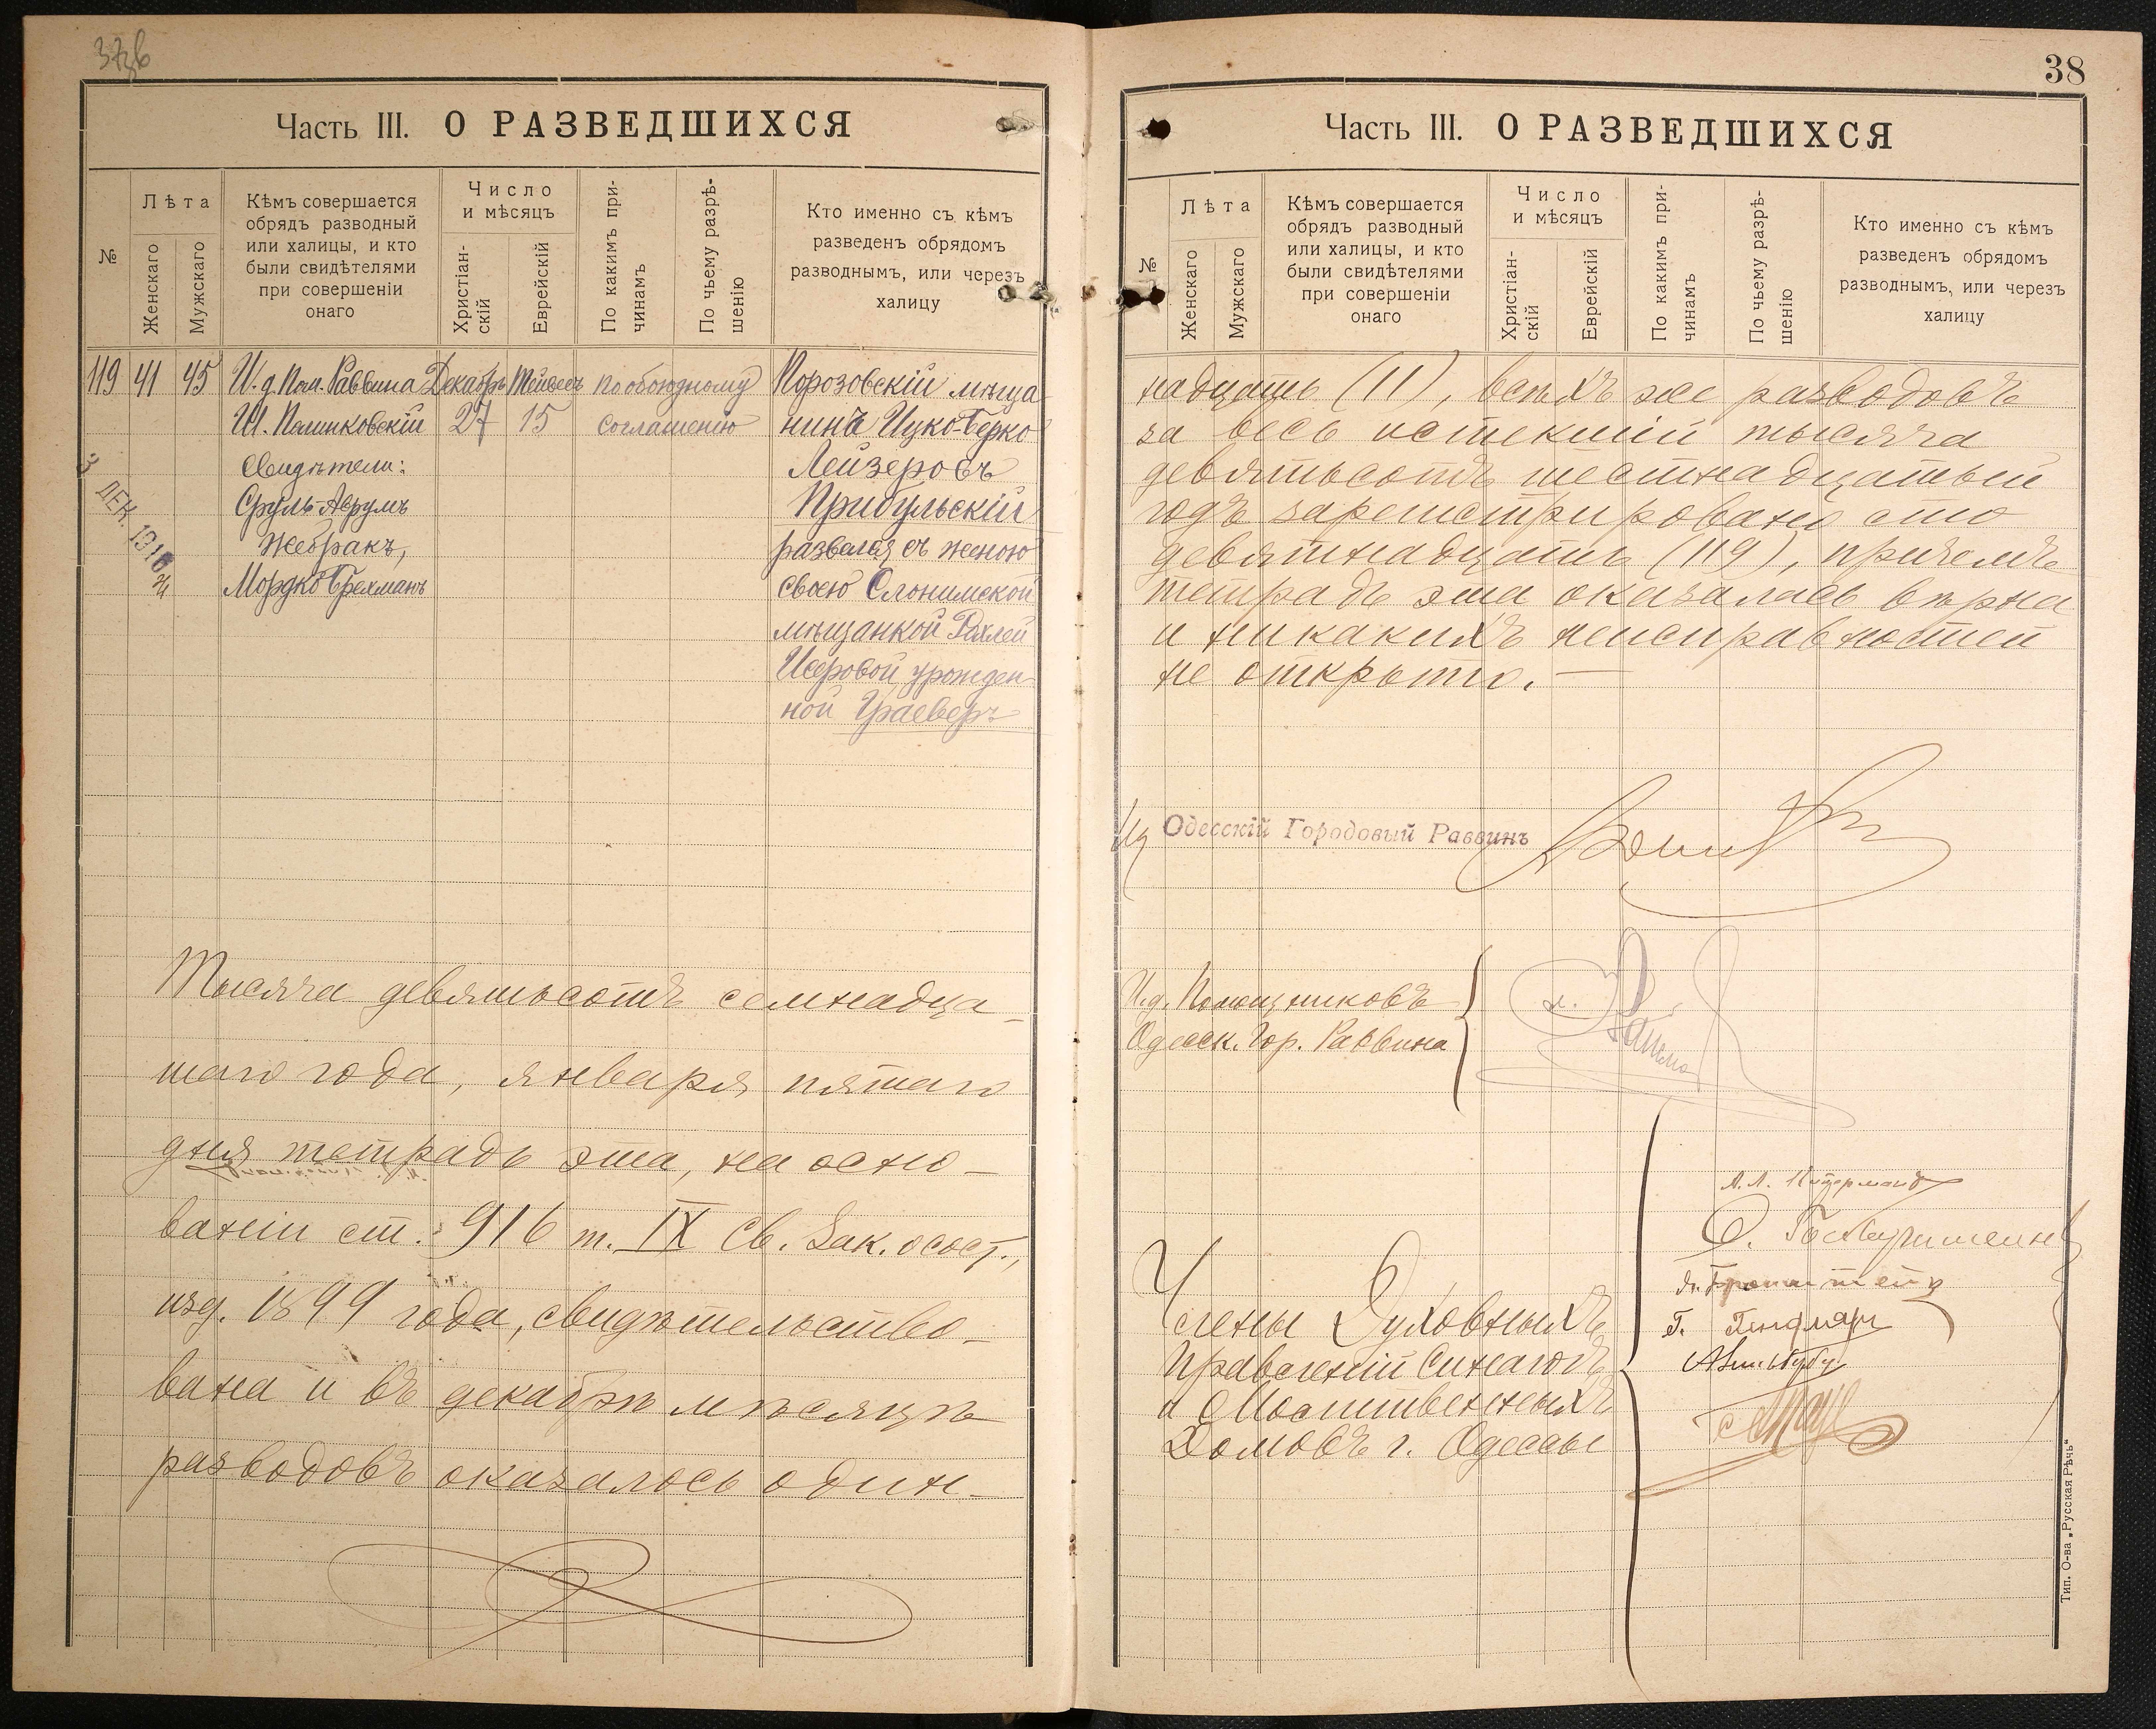 38
Часть III. О РАЗВЕДШИХСЯ
№
Лѣта
Женскаго
Мужскаго
Кѣмъ совершается
обрядъ разводный
или халицы, и кто
были свидѣтелями
при совершеніи
онаго
Число
и мѣсяцъ
Христіан-
скій
Еврейскій
По какимъ при-
чинамъ
По чьему разрѣ-
шенію
Кто именно съ кѣмъ
разведенъ обрядомъ
разводнымъ, или черезъ
халицу
119 41 45 И. д. Пом. Раввина Декабрь Тейвесъ по обоюдному Порозовскій мѣща-
Ш. 27 15 соглашенію нинъ Ицко-Берко
Свидѣтели: Лейзеровъ
Сруль-Аврумъ Прибульскій
Жебракъ, развелся съ женою
Мордко Брехманъ своею Слонимской
мѣщанкой Рахлей
Исеровой, урожден-
ной Граеверъ
ДЕК. 1916
Тысяча девятьсотъ семнадца-
таго года, января пятаго
дня тетрадь эта, на осно-
ваніи ст. 916 т. IX Св. Зак. о сост.,
изд. 1899 года, свидѣтельство-
вана и въ декабрѣ мѣсяцѣ
разводовъ оказалось один-
Часть III. О РАЗВЕДШИХСЯ
№
Лѣта
Женскаго
Мужскаго
Кѣмъ совершается
обрядъ разводный
или халицы, и кто
были свидѣтелями
при совершеніи
онаго
Число
и мѣсяцъ
Христіан-
скій
Еврейскій
По какимъ при-
чинамъ
По чьему разрѣ-
шенію
Кто именно съ кѣмъ
разведенъ обрядомъ
разводнымъ, или черезъ
халицу
надцать (11), всѣхъ же разводовъ
за весь истекшій тысяча
девятьсотъ шестнадцатый
годъ зарегистрировано сто
девятнадцать (119), причемъ
тетрадь эта оказалась вѣрна
и никакихъ неисправностей
не открыто.
Одесскій Городовый Раввинъ
И.д. Помощниковъ
Одесск. Гор. Раввина
Члены Духовныхъ
Правленій Синагогъ
и Молитвенныхъ
Домовъ г. Одессы
Тип. О-ва „Русская Рѣчь“